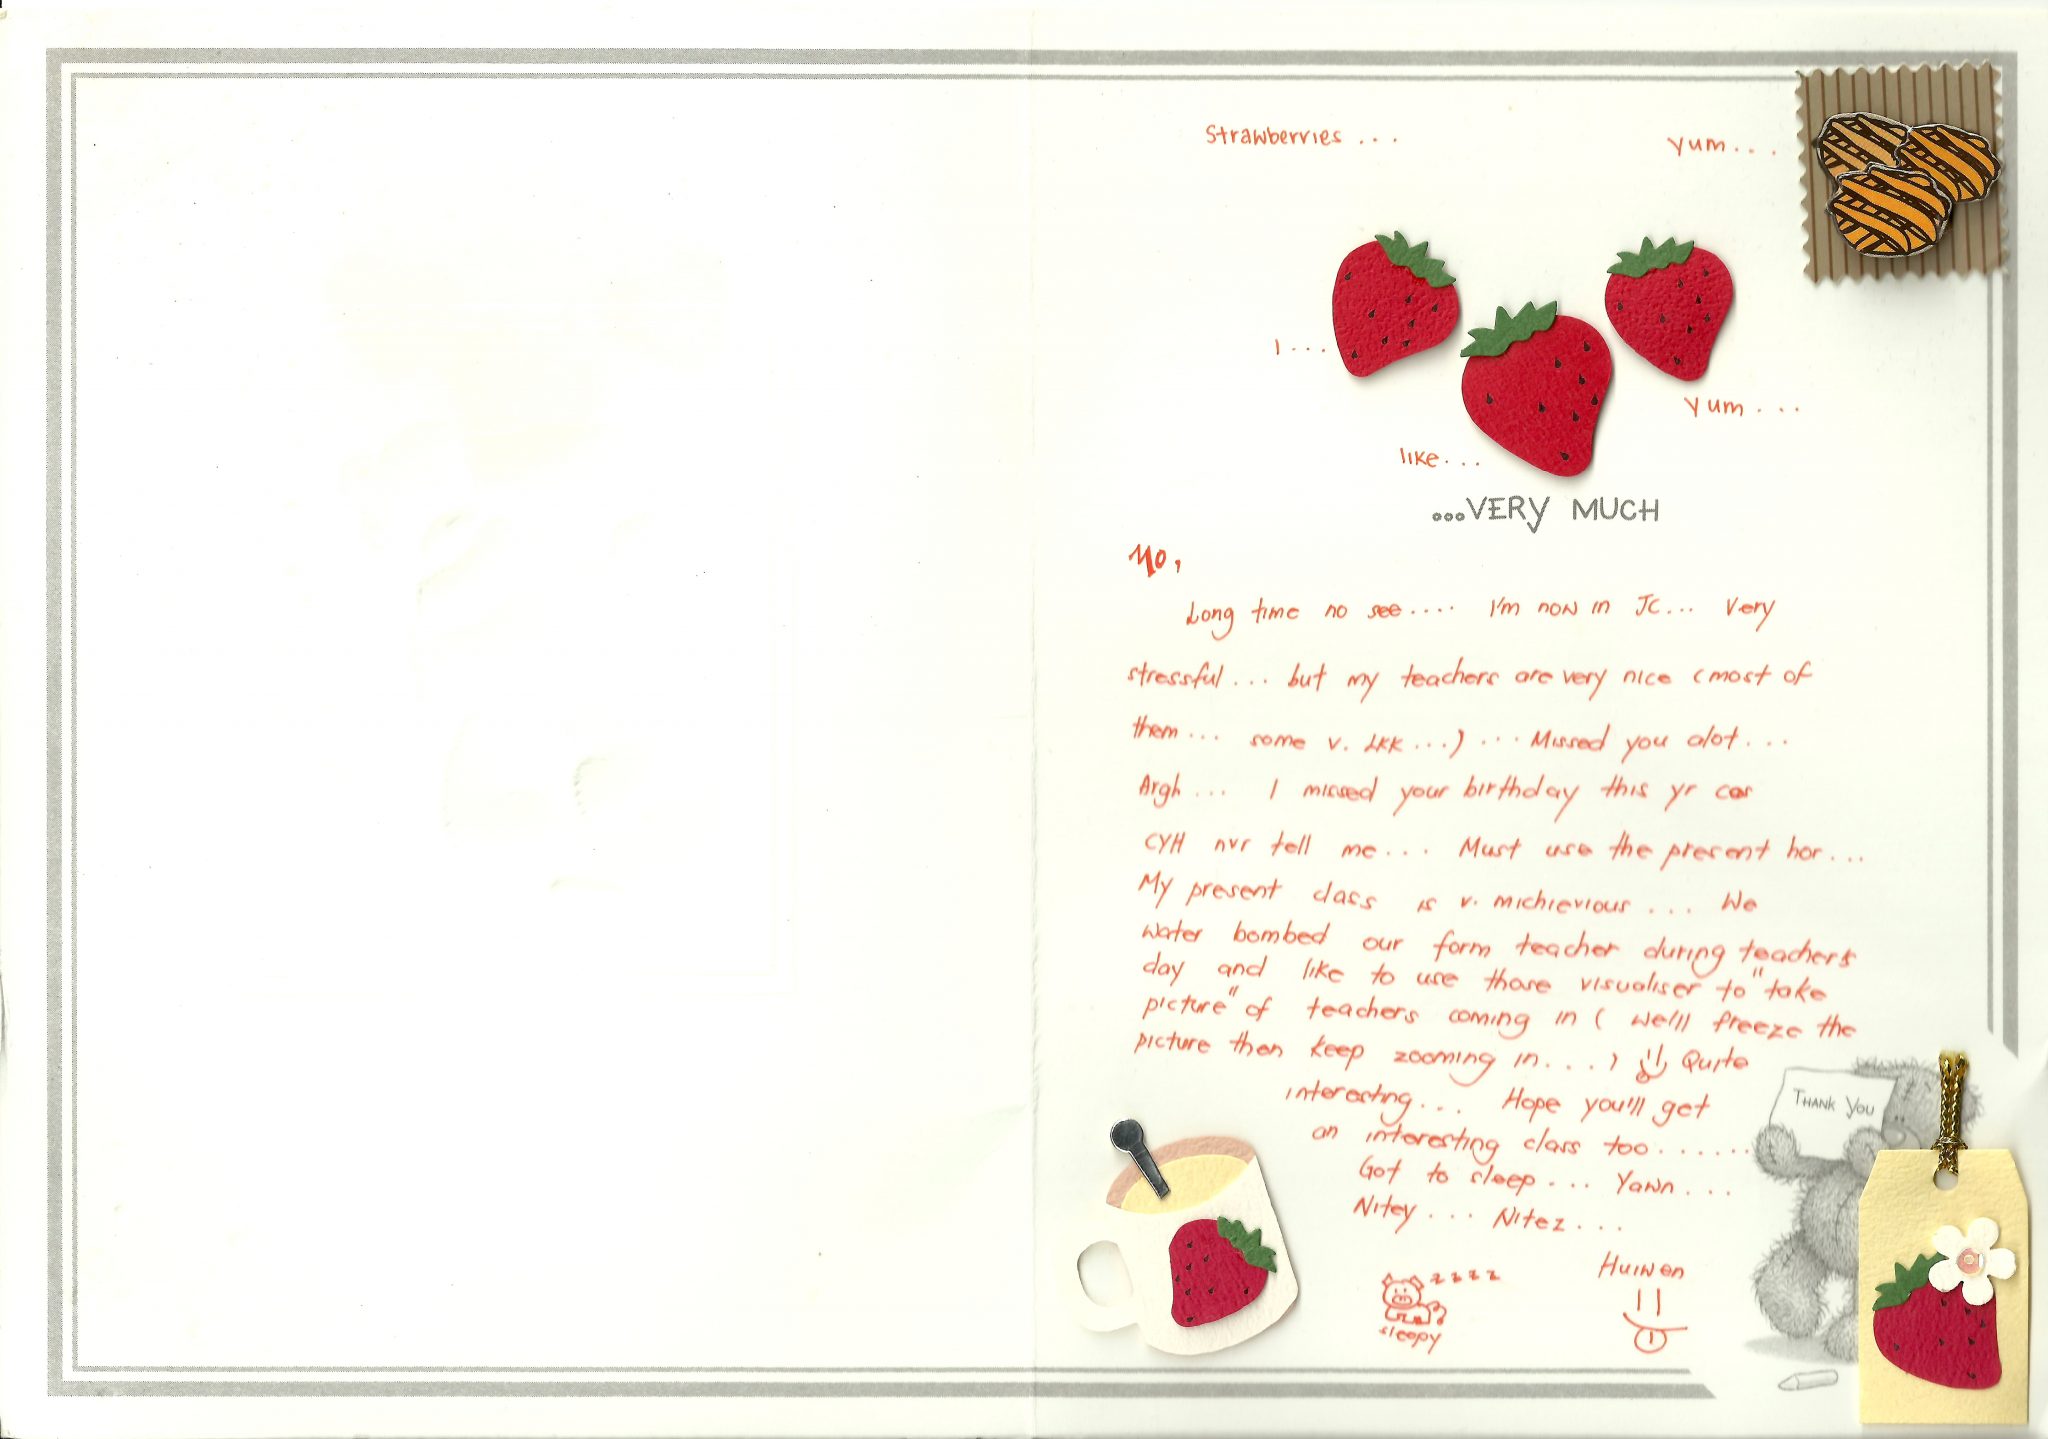 Strawberries ...
yum...
I...
yum...
like...
...VERY MUCH
Yo,
Long time no see.... I'm now in JC... Very
stressful... but my teachers are very nice (most of
them... some v. LKK...) ... Missed you alot...
Argh... I missed your birthday this yr cos
CYH nvr tell me... Must use the present hor...
My present class is v. michievious... We
water bombed our form teacher during teachers
day and like to use those visualiser to "take
picture" of teachers coming in ( we'll freeze the
picture then keep zooming in....) Quite
interesting... Hope you'll get
an interesting class too......
Got to sleep... Yawn...
Nitey... Nitez...
THANK YOU
Huiwen
zzzz
sleepy